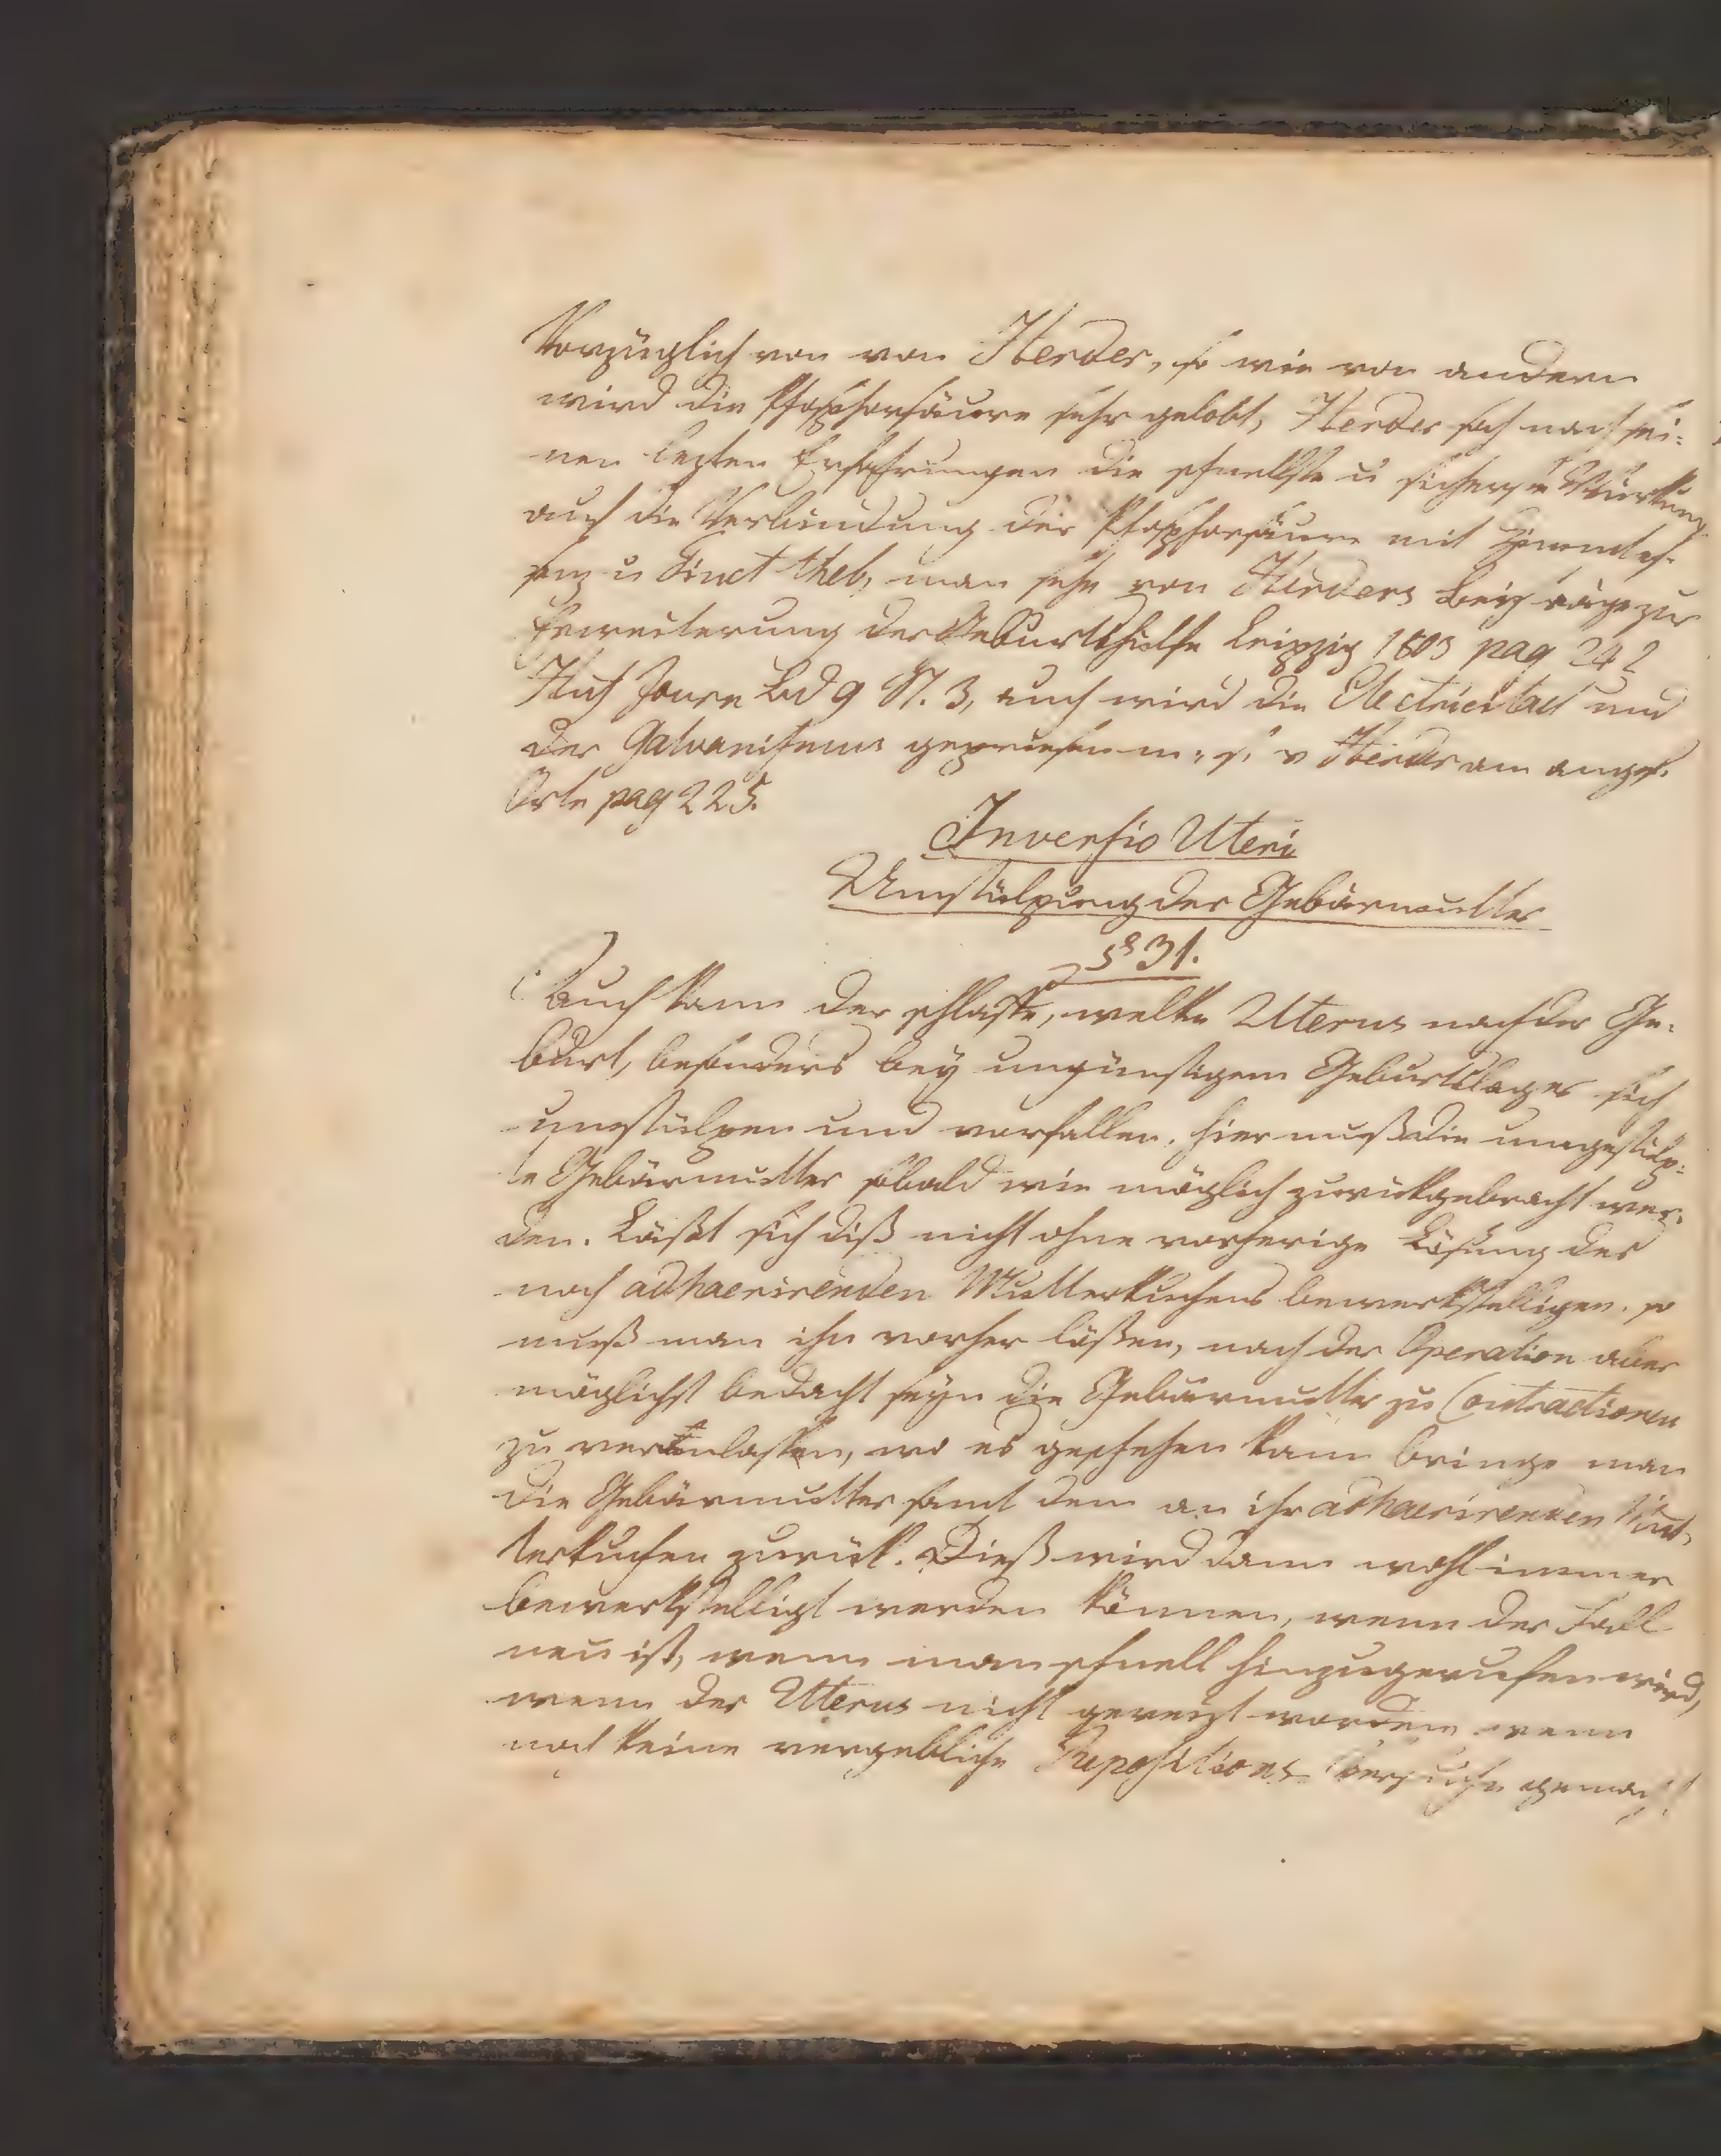 Vorzüglich von von Herder, so wie von andern
wird die Phosphorsäure sehr gelobt, Herder sah nach sei-
nen lezten Erfahrungen die schnellste u sicherste Würkung
auch die Verbindung der Phosphorsäure mit Zimmtes-
senz u Tinct theb, man sehe von Herders Beyträge zur
Erweiterung der Geburtshülfe Leipzig 1803 pag 242
Huf Journ Bd 9 St. 3, auch wird die Electricitaet und
der Galvanismus gepriesen m. s. v Herder am angef.
Orte pag 225.
Inversio Uteri
Umstülpung der Gebärmutter
§ 31.
Auch kann der schlaffe, welke Uterus nach der Ge-
burt, besonders bey ungünstigem Geburtslager sich
umstülpen und vorfallen. hier muß die umgestülp-
te Gebärmutter sobald wie möglich zurückgebracht wer-
den. Läßt sich diß nicht ohne vorherige Lösung des
noch adhaerirenden Mutterkuchens bewerkstelligen. so
muß man ihn vorher lößen, nach der Operation aber
möglichst bedacht seyn die Gebärmutter zu Contractionen
zu veranlassen, wo es geschehen kann bringe man
die Gebärmutter samt dem an ihr adhaerirenden Mut-
terkuchen zurück. Dieß wird dann wohl immer
bewerkstelligt werden können, wenn der Fall
neu ist, wenn man schnell hinzugerufen wird,
wenn der Uterus nicht gereizt worden, wenn
noch keine vergebliche Repositions Versuche gemacht